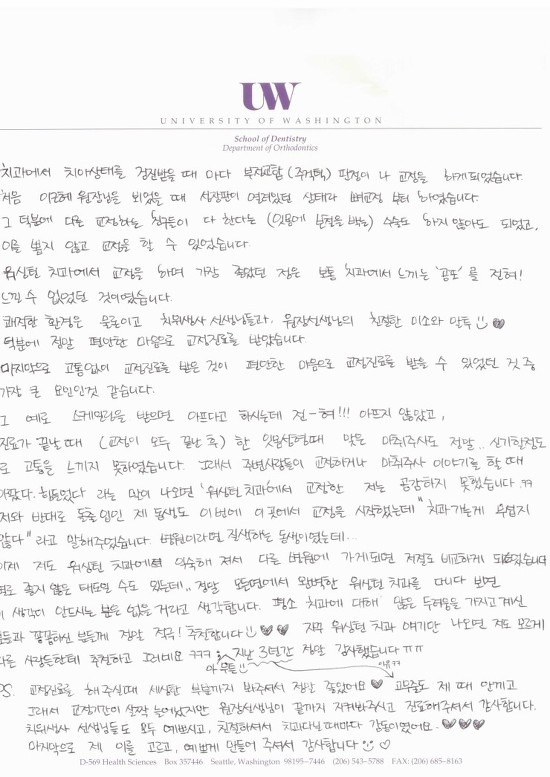 UW
UNIVERSITY OF WASHINGTON
School of Dentistry
Department of Orthodontics
치과에서 치아상태를 검진받을 때 마다 부정교합 (주걱턱) 판정이 나 교정을 하게되었습니다.
처음 이근혜 원장님을 뵈었을 때 성장판이 열려있던 상태라 뼈교정 부터 하였습니다.
그 덕분에 다른 교정하는 친구들이 다 한다는 (잇몸에 를 박는) 수술도 하지 않아도 되었고,
이를 뽑지 않고 교정을 할 수 있었습니다.
워싱턴 치과에서 교정을 하며 가장 좋았던 점은 보통 치과에서 느끼는 '공포'를 전혀!
느낄 수 없었던 것이였습니다.
쾌적한 환경은 물론이고 치위생사 선생님들과, 원장선생님의 친절한 미소와 말투
덕분에 정말 편안한 마음으로 교정진료를 받았습니다.
마지막으로 고통없이 교정진료를 받은 것이 편안한 마음으로 교정진료를 받을 수 있었던 것 중
가장 큰 요인인것 같습니다.
그 예로 스케일링을 받으면 아프다고 하시는데 전-혀!!! 아프지 않았고,
진료가 끝날때 (교정이 모두 끝난 후) 한 잇몸성형때 맞은 마취주사도 정말.. 신기할정도
로 고통을 느끼지 못하였습니다. 그래서 주변사람들이 교정하거나 마취주사 이야기를 할 때
아팠다. 힘들었다 라는 말이 나오면 '워싱턴 치과'에서 교정한 저는 공감하지 못했습니다. ㅠㅠ
저와 반대로 돌출입인 제 동생도 이번에 이곳에서 교정을 시작했는데 "치과가는게 무섭지
않다" 라고 말해주었습니다. 병원이라면 질색하는 동생이였는데...
이제 저도 워싱턴 치과에 익숙해 져서 다른 병원에 가게되면 저절로 비교하게 되었습니다
별로 좋지 않은 태도일 수도 있는데,, 정말 모든면에서 완벽한 워싱턴 치과를 다니다 보면
이 생각이 안드시는 분은 없을 거라고 생각합니다. 평소 치과에 대해 많은 두려움을 가지고 계신
분들과 꼼꼼하신 분들께 정말 적극! 추천합니다 자꾸 워싱턴 치과 얘기만 나오면 저도 모르게
다른 사람들한테 추천하고 그러네요 ㅋㅋㅋ; 지난 3년간 정말 감사했습니다 ㅠㅠ
아무튼
PS. 교정진료를 해주실때 세심한 부분까지 봐주셔서 정말 좋았어요 고무줄도 제 때 안끼고
그래서 교정기간이 살짝 늘어났지만 원장선생님이 끝까지 지켜봐주시고 진료해주셔서 감사합니다.
치위생사 선생님들도 모두 예쁘시고, 친절하셔서 치과다닐때마다 감동이였어요.
마지막으로 제 이를 고르고, 예쁘게 만들어 주셔서 감사합니다
D-569 Health Sciences Box 357446 Seattle, Washington 98195-7446 (206) 543-5788 FAX: (206) 685-8163